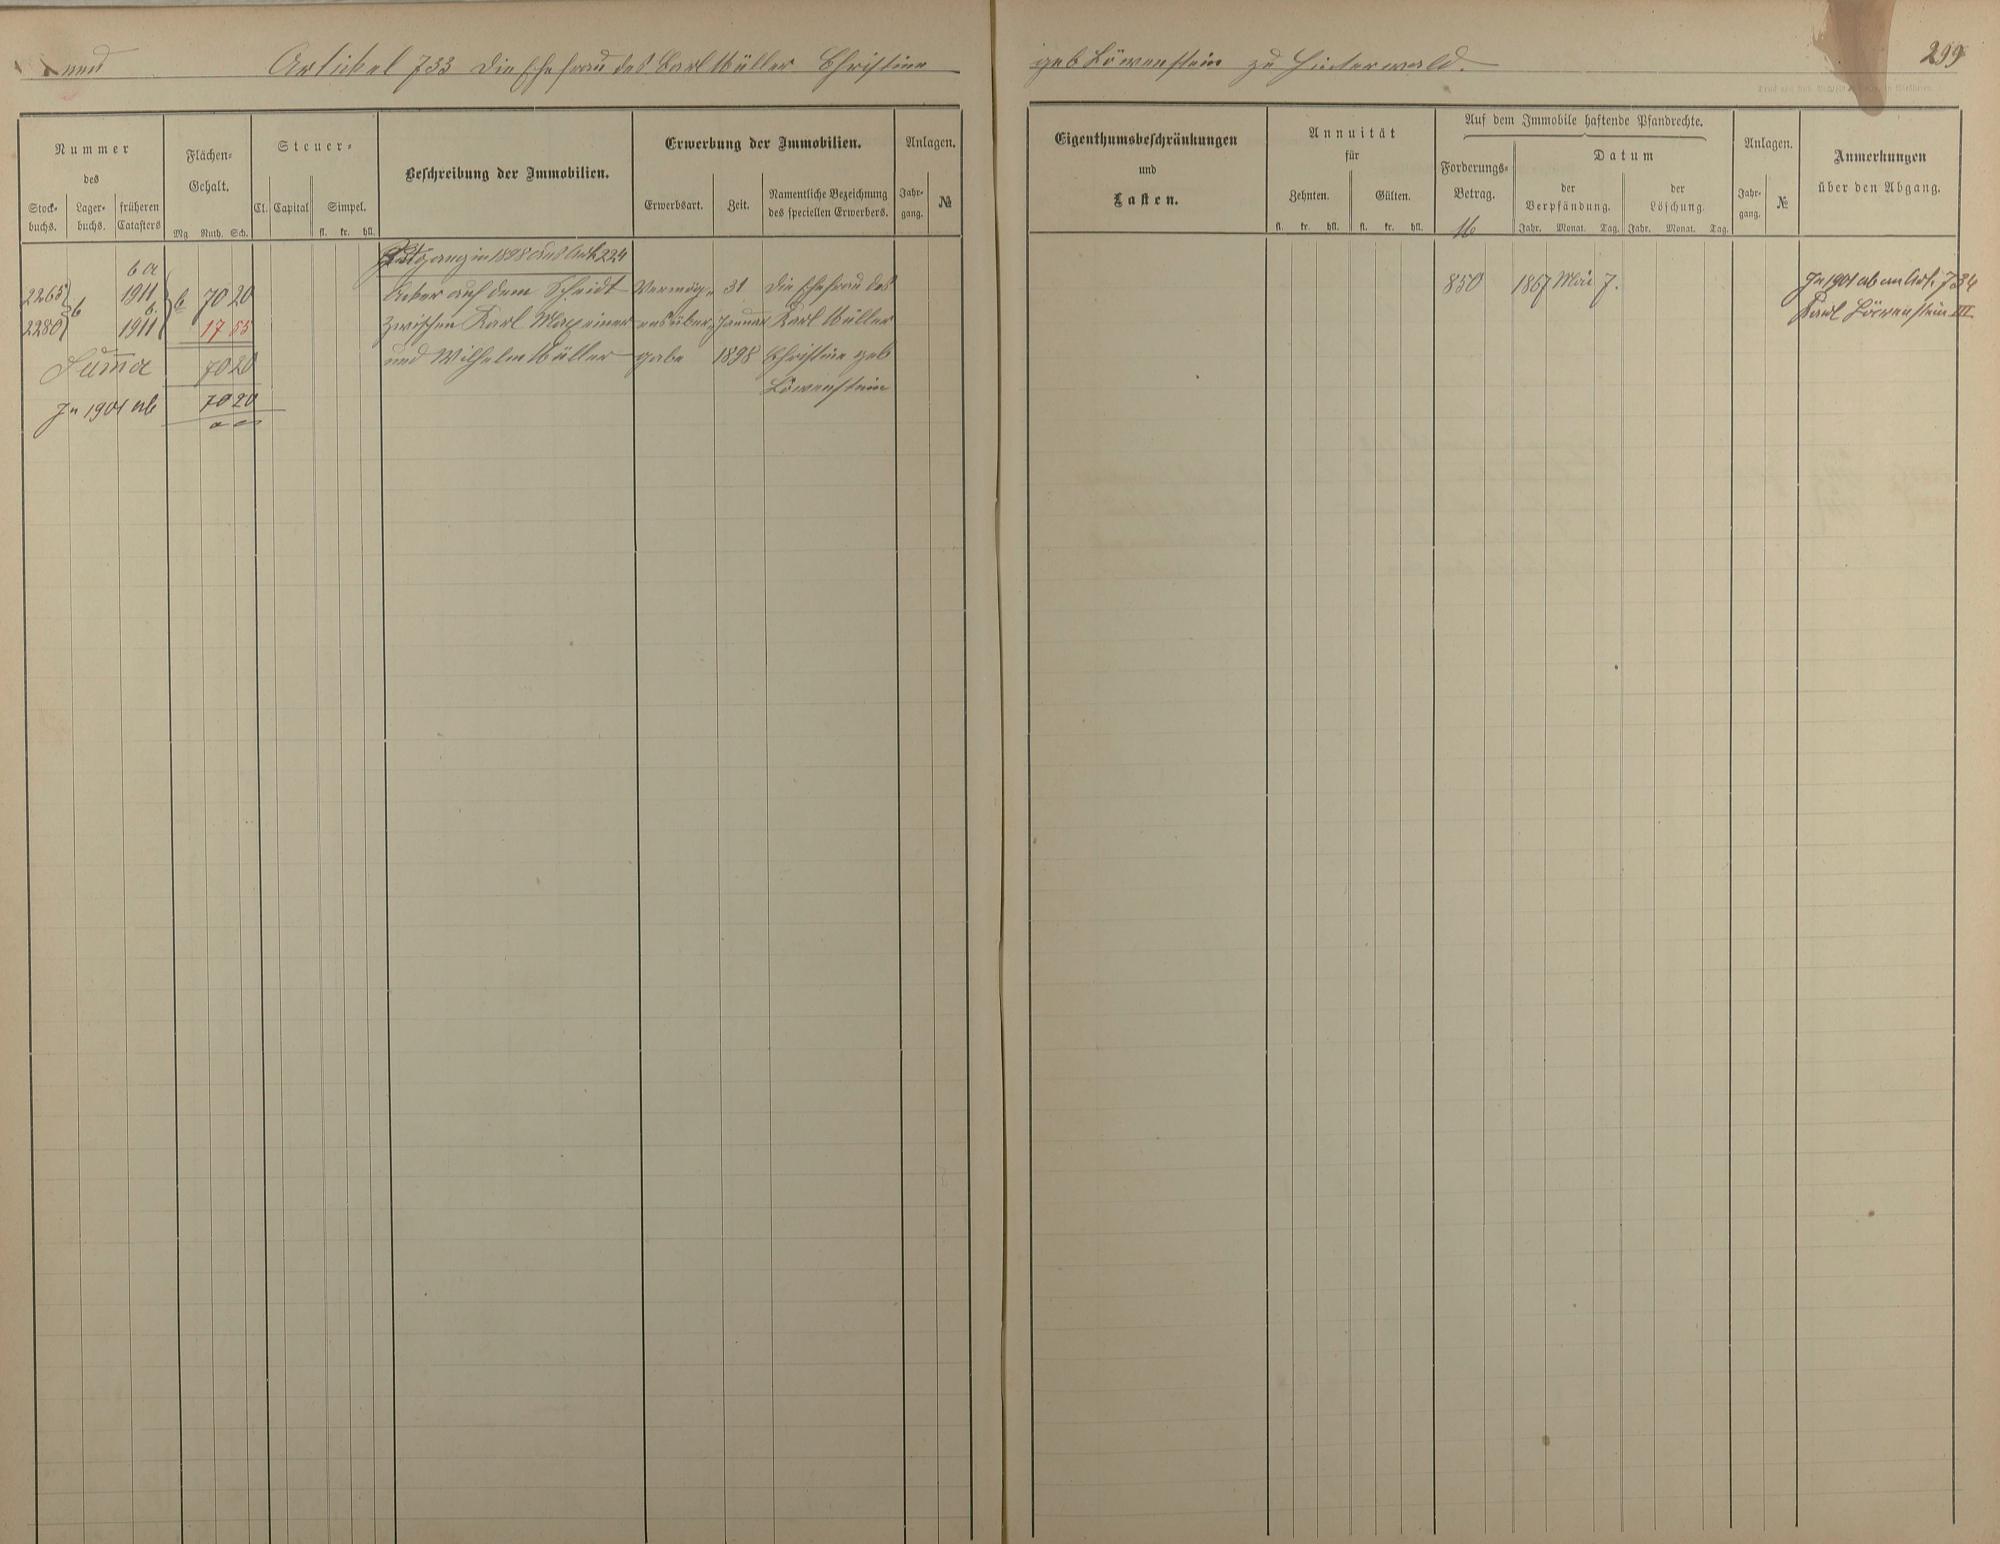 Artikel 733 die Ehefrau des Carl Müller Christine geb Löwenstein zu Hinterwald.
299
Nummer
des
Stock-
buchs.
Lager-
buchs.
früheren
Catasters
Flächen-
Gehalt.
Mg. Ruth. Sch.
Steuer-
Cl. Capital
Simpel.
fl. kr. hll.
Beschreibung der Immobilien.
Erwerbung der Immobilien.
Erwerbsart.
Zeit.
Namentliche Bezeichnung
des speciellen Erwerbers.
Anlagen.
Jahr-
gang.
№
Eigenthumsbeschränkungen
und
Lasten.
Annuität
für
Zehnten.
Gülten.
fl. kr. hll. fl. kr. hll.
Auf dem Immobile haftende Pfandrechte.
Forderungs-
Betrag.
Datum
der
Verpfändung.
der
Löschung.
Jahr. Monat. Tag. Jahr. Monat. Tag.
Anlagen.
Jahr-
gang.
№
Anmerkungen
über den Abgang.
Zugang in 1898 aus Art 224
6 a
2265 1911 6 70 20 Acker auf dem Scheidt Vermög- 31 die Ehefrau des 850 1867 Mai 7. In 1901 ab an Art. 734
6 6
2280 1911 17 55 zwischen Karl Maxeiner ensüber- Januar Karl Müller Karl Löwenstein III
Suma 70 20 und Wilhelm Müller gabe 1898 Christine geb
Löwenstein
In 1901 ab 70 20